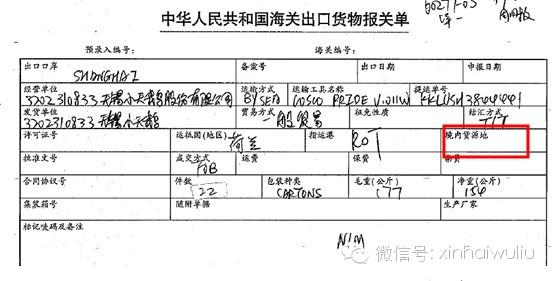 中华人民共和国海关出口货物报关单
预录入编号： 海关编号：
出口口岸 备案号 出口日期 申报日期
SHANGHAI
经营单位 运输方式 运输工具名称 提运单号
3202310833 无锡小天鹅股份有限公司 BY SEA COSCO PRIDE V.011W
发货单位 贸易方式 征免性质 结汇方式
3202310833 无锡小天鹅 一般贸易 T/T
许可证号 运抵国(地区) 指运港 境内货源地
荷兰 ROT
批准文号 成交方式 运费 保费 杂费
FOB
合同协议号 件数 包装种类 毛重(公斤) 净重(公斤)
22 CARTONS 177 154
集装箱号 随附单据 生产厂家
标记唛码及备注
N/M
微信号: xinhaiwuliu